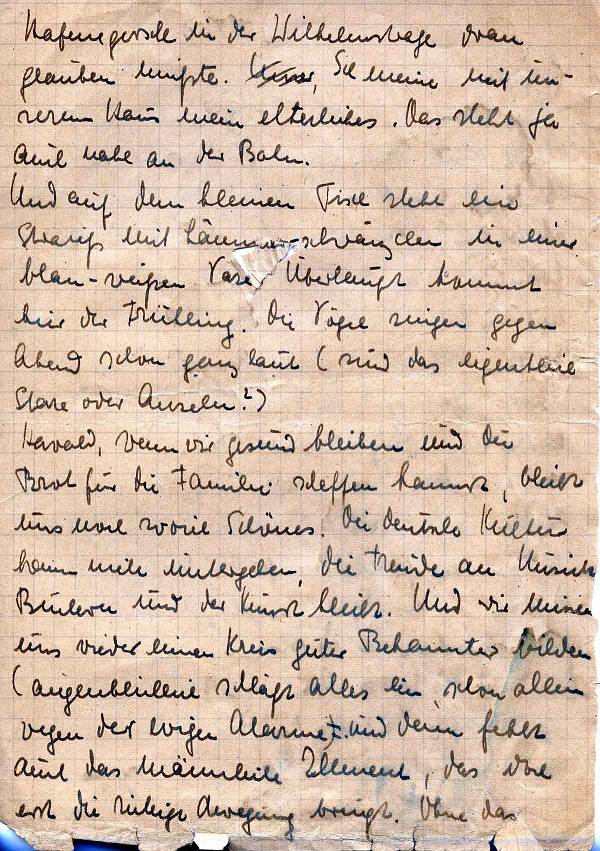 in der Wilhelmstrasse dran
glauben müsste. Ich meine mit un-
serem Haus mein elterliches. Das steht ja
auch nahe an der Bahn.
Und auf dem kleinen Tisch steht ein
Strauß mit Lämmerschwänzchen in einer
blau-weißen Vase. Überhaupt kommt
hier der Frühling. Die Vögel singen gegen
Abend schon ganz laut (sind das eigentlich
Stare oder Amseln?)
Harald, wenn wir gesund bleiben und Du
Brot für die Familie schaffen kannst, bleibt
uns noch soviel Schönes. Die deutsche Kultur
kann nicht untergehen, die Freude an Musik
Büchern und der Kunst bleibt. Und wir müssen
uns wieder einen Kreis guter Bekannter bilden
(augenblicklich schläft alles ein schon allein
wegen der ewigen Alarme) und dann fehlt
auch das männliche Element, das doch
erst die richtige Bewegung bringt. Ohne das